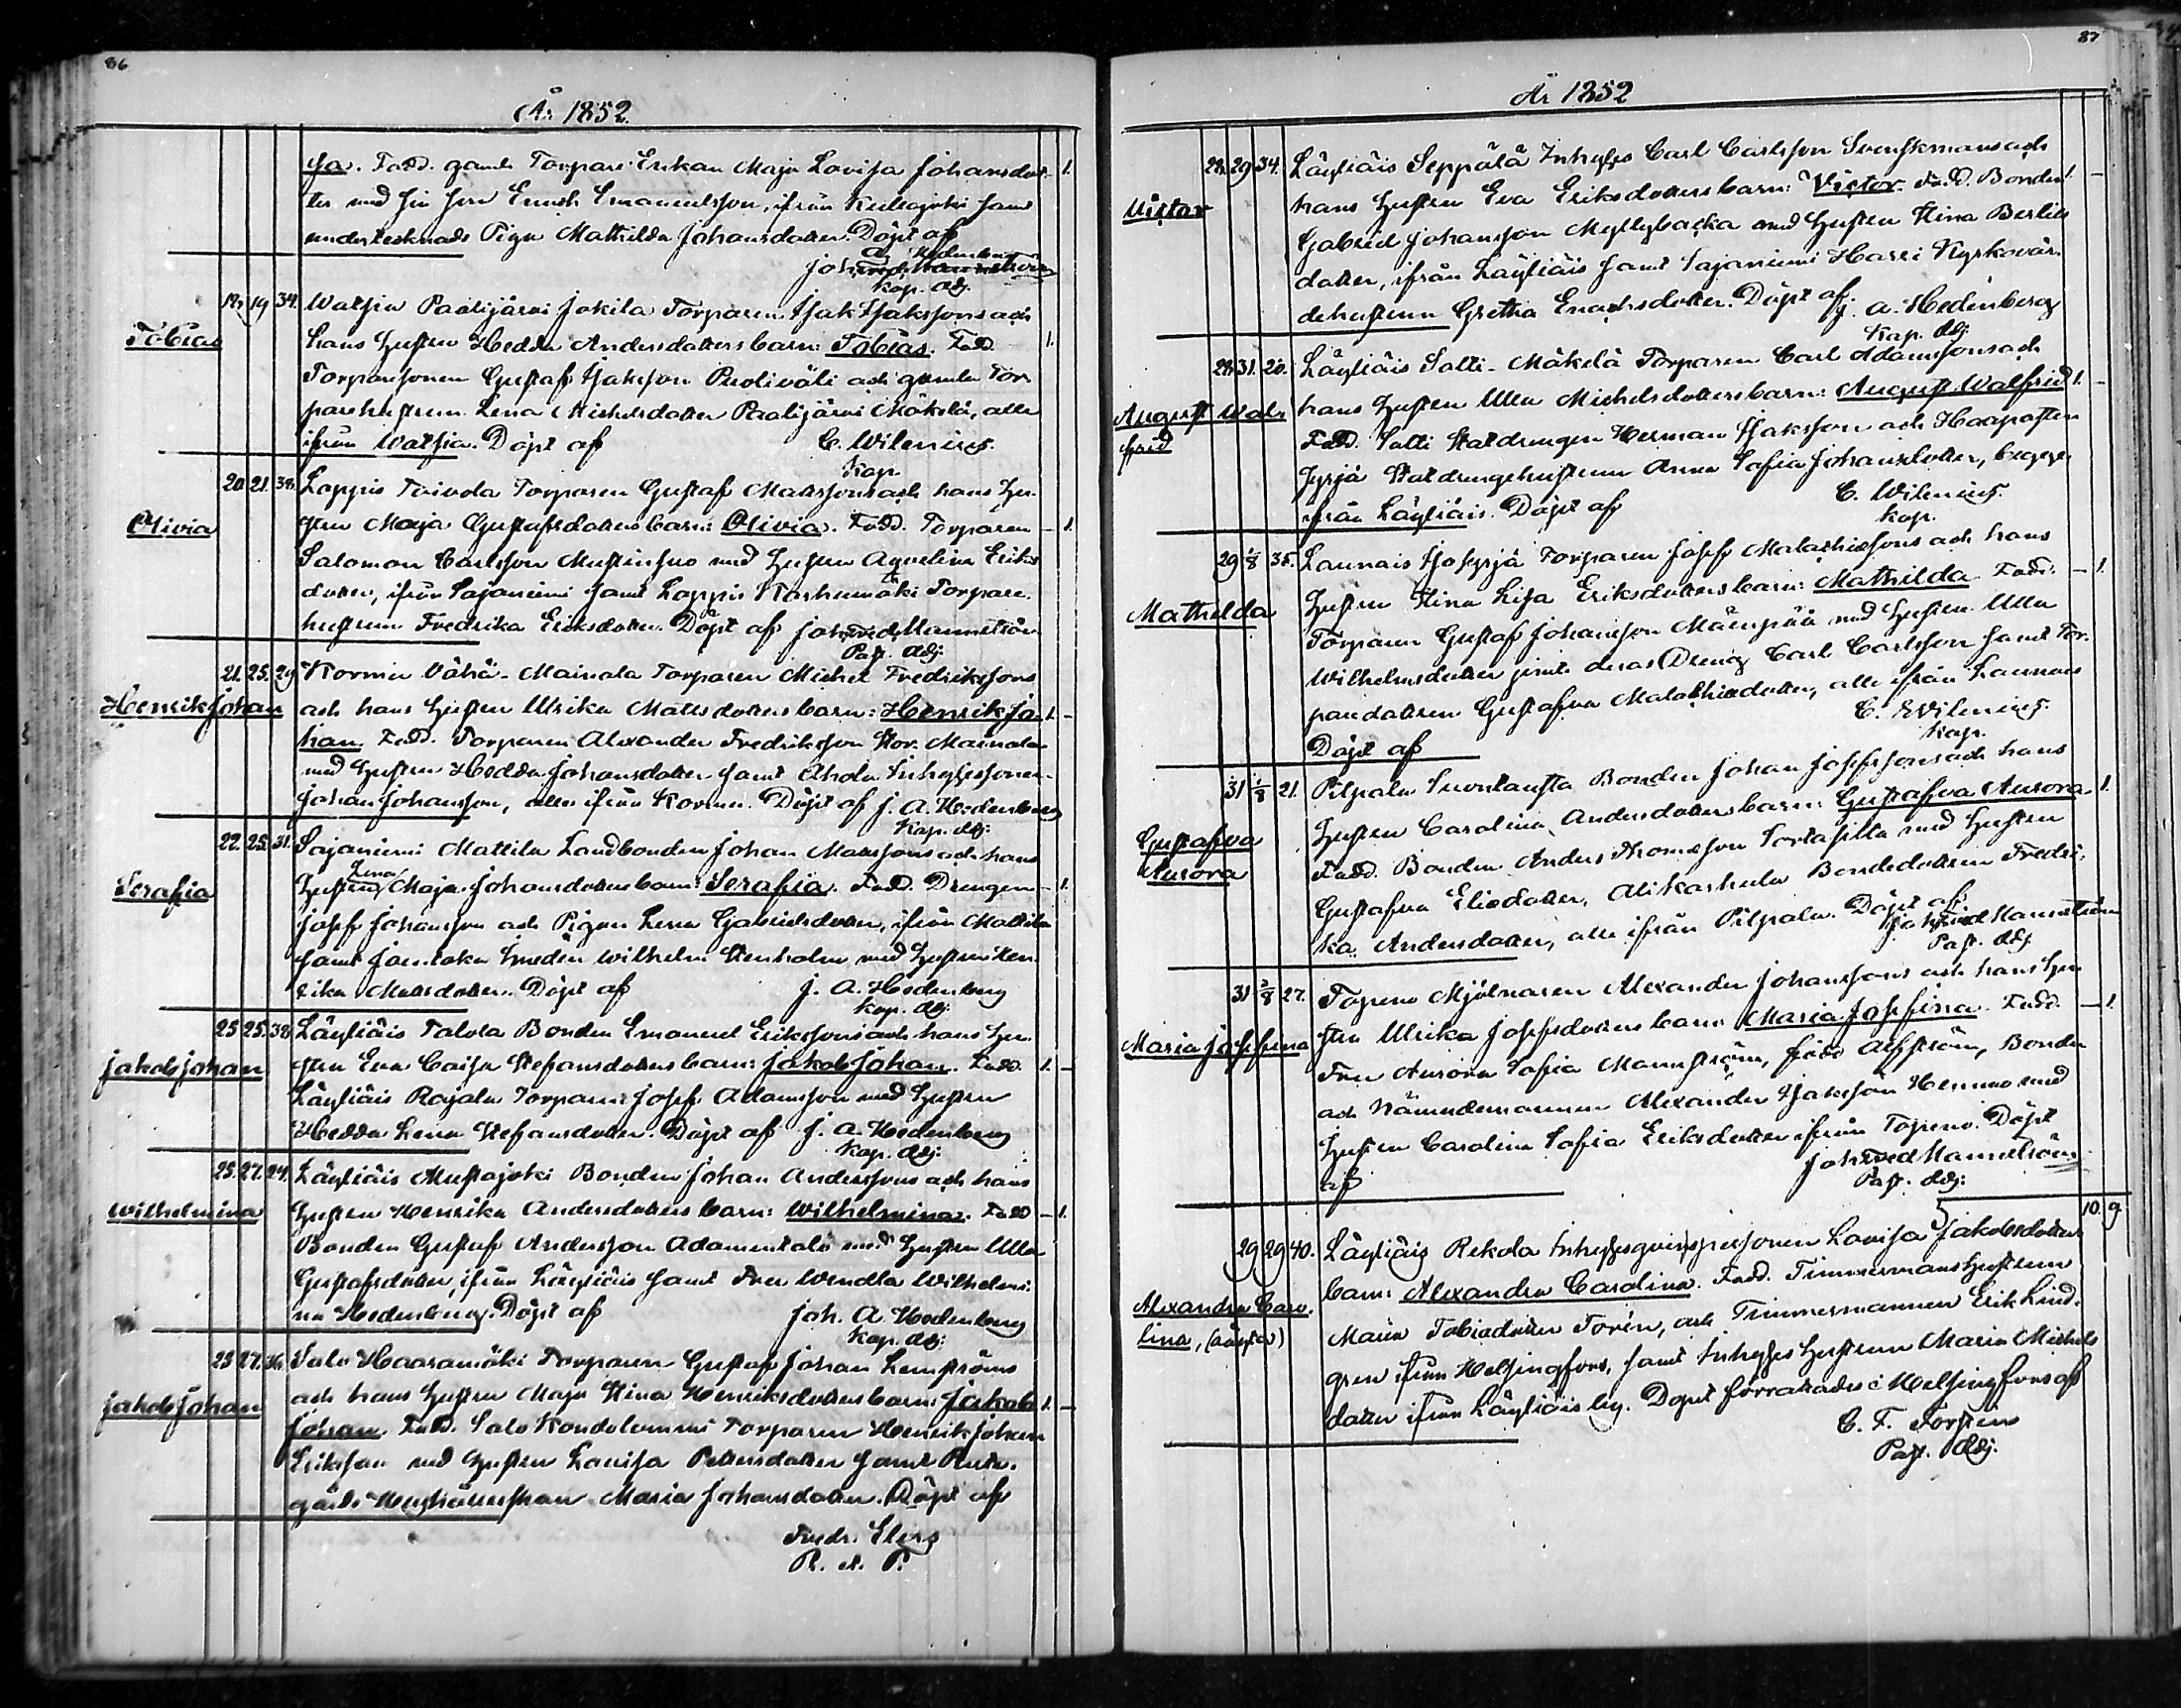 86
År 1852.
sa. Fadd. gamle Torpare Enkan Maja Lovisa Johansdot- 1.
ter med sin son Enoch Emanuelsson, ifrån Kullajoki samt
undertecknads Piga Mathilda Johansdotter. Döpt af
A. Hedenberg
Kap. Adj.
17. 19 34. Watsia Paalijärvi Jokila Torparen Isak Isakssons och
Tobias
hans Hustru Hedda Andersdotters barn: Tobias. Fadd. 1.
Torparesonen Gustaf Isaksson Puoliväli och gamla Tor
parehustrun Lena Michelsdotter Paalijärvi Mäkelä, alla
ifrån Watsia. Döpt af C. Wilenius.
Kap.
20. 21. 38. Loppis Toivola Torparen Gustaf Matssons och hans Hu-
Olivia
stru Maja Gustafsdotters barn: Olivia. Fadd. Torparen – 1.
Salomon Carlsson Mustinsuo med Hustru Aqvelina Eriks
dotter, ifrån Sajaniemi samt Loppis Korhumäki Torpare
hustrun Fredrika Eriksdotter. Döpt af Joh. Fred. Mannström
Past. Adj.
21. 25. 29 Kormu Vähä-Mainala Torparen Michel Fredrikssons
Henrik Johan
och hans Hustru Ulrika Mattsdotters barn: Henrik Jo- 1. –
han. Fadd. Torparen Alexander Fredriksson Stor-Mainala
med Hustru Hedda Johansdotter samt Ahola Inhysessonen
Johan Johansson, alla ifrån Kormu. Döpt af J. A. Hedenberg
Kap. Adj.
22. 25. 31. Sajaniemi Mattila Landbonden Johan Matssons och hans
Serafia
Hustru Maja Johansdotters barn: Serafia. Fadd. Drengen – 1.
Josef Johansson och Pigan Lena Gabrielsdotter, ifrån Mattila
samt Smeden Wilhelm Stenholm med Hustru Hen
rika Matsdotter. Döpt af J. A. Hedenberg
Kap. Adj.
25 25. 38 Läyliäis Talola Bonden Emanuel Erikssons och hans Hu-
Jakob Johan
stru Eva Caisa Stefansdotters barn: Jakob Johan. Fadd. 1. –
Läyliäis Rajala Torparen Josef Adamsson med Hustru
Hedda Lena Stefansdotter. Döpt af J. A. Hedenberg
Kap. Adj.
25. 27. 24. Läyliäis Mustajoki Bonden Johan Anderssons och hans
Wilhelmina
Hustru Henrika Andersdotters barn: Wilhelmina. Fadd – 1.
Bonden Gustaf Andersson Adamintalo med Hustru Ulla
Gustafsdotter, ifrån Läyliäis samt Fru Wendla Wilhelmi-
na Hedenberg. Döpt af Joh. A. Hedenberg
Kap. Adj.
23 27. 36. Salo Haaramäki Torparen Gustaf Johan Lemströms
Jakob Johan
och hans Hustru Maja Stina Henriksdotters barn: Jakob 1. –
Johan. Fadd. Salo Kondolammi Torparen Henrik Johan
Eriksson med Hustru Lovisa Pettersdotter samt
Maria Johansdotter. Döpt af
Fredr. Elers
P. o. P.
87
År 1852
28. 29 34. Läyliäis Seppälä Inhyses Carl Carlsson Svenskmans och
Victor
hans Hustru Eva Eriksdotters barn: Victor. Fadd. Bonden 1. –
Gabriel Johansson Myllybacka med Hustru Stina Berlins
dotter, ifrån Läyliäis samt Sajaniemi Harri Kyrkovär-
dehustrun Gretha Enochsdotter. Döpt af J. A. Hedenberg
Kap. Adj.
28. 31. 20. Läyliäis Salti-Mäkelä Torparen Carl Adamssons och
August Wal-
frid
hans Hustru Ulla Michelsdotters barn: August Walfrid 1. –
Fadd. Salti Statdrengen Herman Isaksson och Haapasten
Statdrengehustrun Anna Sofia Johansdotter, begge
ifrån Läyliäis. Döpt af C. Wilenius.
Kap.
29 1/8 35. Launais Isosyrjä Torparen Josef Malachiassons och hans
Mathilda
Hustru Stina Lisa Eriksdotters barn: Mathilda. Fadd. – 1.
Torparen Gustaf Johansson Mäenpää med Hustru Ulla
Wilhelmsdotter jemte deras Dreng Carl Carlsson samt Tor-
paredottren Gustafva Malachiædotter, alla ifrån Launais
Döpt af C. Wilenius.
Kap.
31 1/8 21. Pilpala Suontausta Bonden Johan Josefssons och hans
Gustafva
Aurora
Hustru Carolina Andersdotters barn: Gustafva Aurora 1.
Fadd. Bonden Anders Thomasson Sortasilla med Hustru
Gustafva Eliædotter, Alikarhula Bondedottren Fredri-
ka Andersdotter, alla ifrån Pilpala. Döpt af
Joh. Fred Mannström
Past. Adj.
31 3/8 27. Topeno Mjölnaren Alexander Johanssons och hans Hu
Maria Josefina
stru Ulrika Josefsdotters barn: Maria Josefina. Fadd. – 1.
Fru Aurora Sofia Mannström, född Alfström, Bonden
och Nämndemannen Alexander Isaksson Hemmo med
Hustru Carolina Sofia Eriksdotter ifrån Topeno. Döpt
af Joh. Fred Mannström
Past. Adj.
10. 9.
29 29 40. Läyliäis Rekola Inhysesqvinspersonen Lovisa Jakobsdotters
Alexandra Caro-
lina, (oägta)
barn: Alexandra Carolina. Fadd. Timmermanshustrun
Maria Tobiædotter Torin, och Timmermannen Erik Lind-
gren ifrån Helsingfors, samt Inhyses Hustrun Maria Michels
dotter ifrån Läyliäis by. Dopet förrättades i Helsingfors af
C. F. Forsten
Past. Adj.